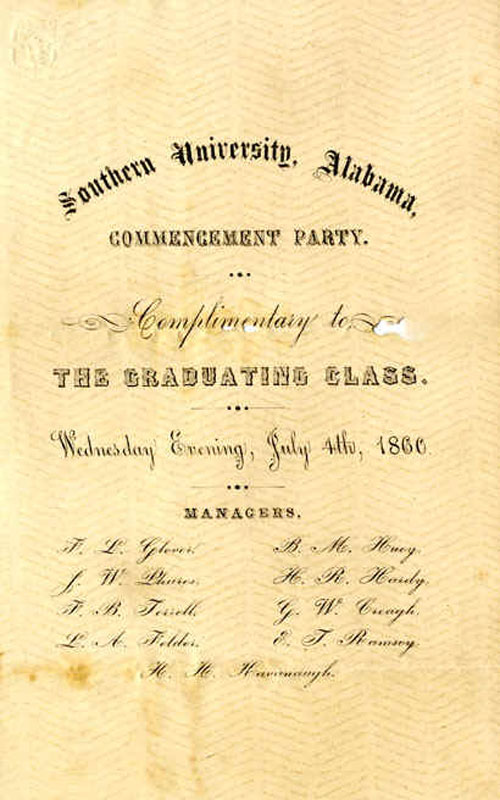 Southern University, Alabama,
COMMENCEMENT PARTY.
Complimentary to
THE GRADUATING CLASS.
Wednesday Evening, July 4th, 1860.
MANAGERS.
F. L. Glover. B. M. Huey.
J. W. Phares. H. R. Hardy.
F. B. Terrell. G. W. Creagh.
L. A. Felder. E. T. Ramsey.
H. H. Kavanaugh.